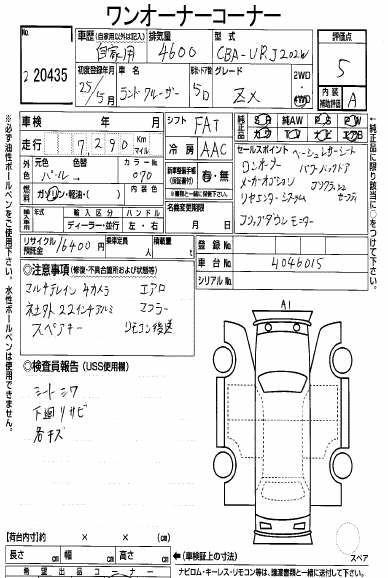 ワンオーナーコーナー
出品No.
2 20435
車歴(自家用以外は記入)
自家用
排気量
4600
型式
CBA-URJ202W
評価点
5
初度登録年月
25/5月
車名
ランドクルーザー
形状・ドア数
5D
グレード
ZX
2WD
4WD
内装補助評価
A
※必ず油性ボールペンをご使用下さい。水性ボールペンは使用できません。
車検 年 月
シフト
FAT
純正品
SR 純AW PS PW
カワ TV ナビ エアB
純正品に限り該当に○をつけて下さい。
走行
7290
Km
マイル
冷房
AAC
外色
元色 色替
パール
カラーNo.
070
新車整備手帳(保証書付)
有・無
※書類と一緒に発送して下さい
セールスポイント
ベージュレザーシート
ワンオーナー パワーバックドア
メーカーオプション プリクラッシュ
リヤエンターシステム セーフティ
コンフプダウンモニター
燃料
ガソリン・軽油・( )
内装色
名義変更期限
月
日
輸入車
年式
輸入区分
ハンドル
ディーラー・並行
左・右
リサイクル預託金
16400 円
乗車定員
人
積載量
t
登録No.
車台No.
4046015
シリアルNo.
◎注意事項(修復・不具合箇所および状態等)
マルチテレイン4カメラ エアロ
社外22インチアルミ マフラー
スペアキー リモコン後送
A1
◎検査員報告(USS使用欄)
シートシワ
下廻りサビ
各キズ
スペア
【荷台内寸】 × × (cm)
長さ cm 幅 cm 高さ cm
←(車検証上の寸法)
希望出品コーナー
ナビロム・キーレス・リモコン等は、譲渡書類と一緒に送付して下さい。